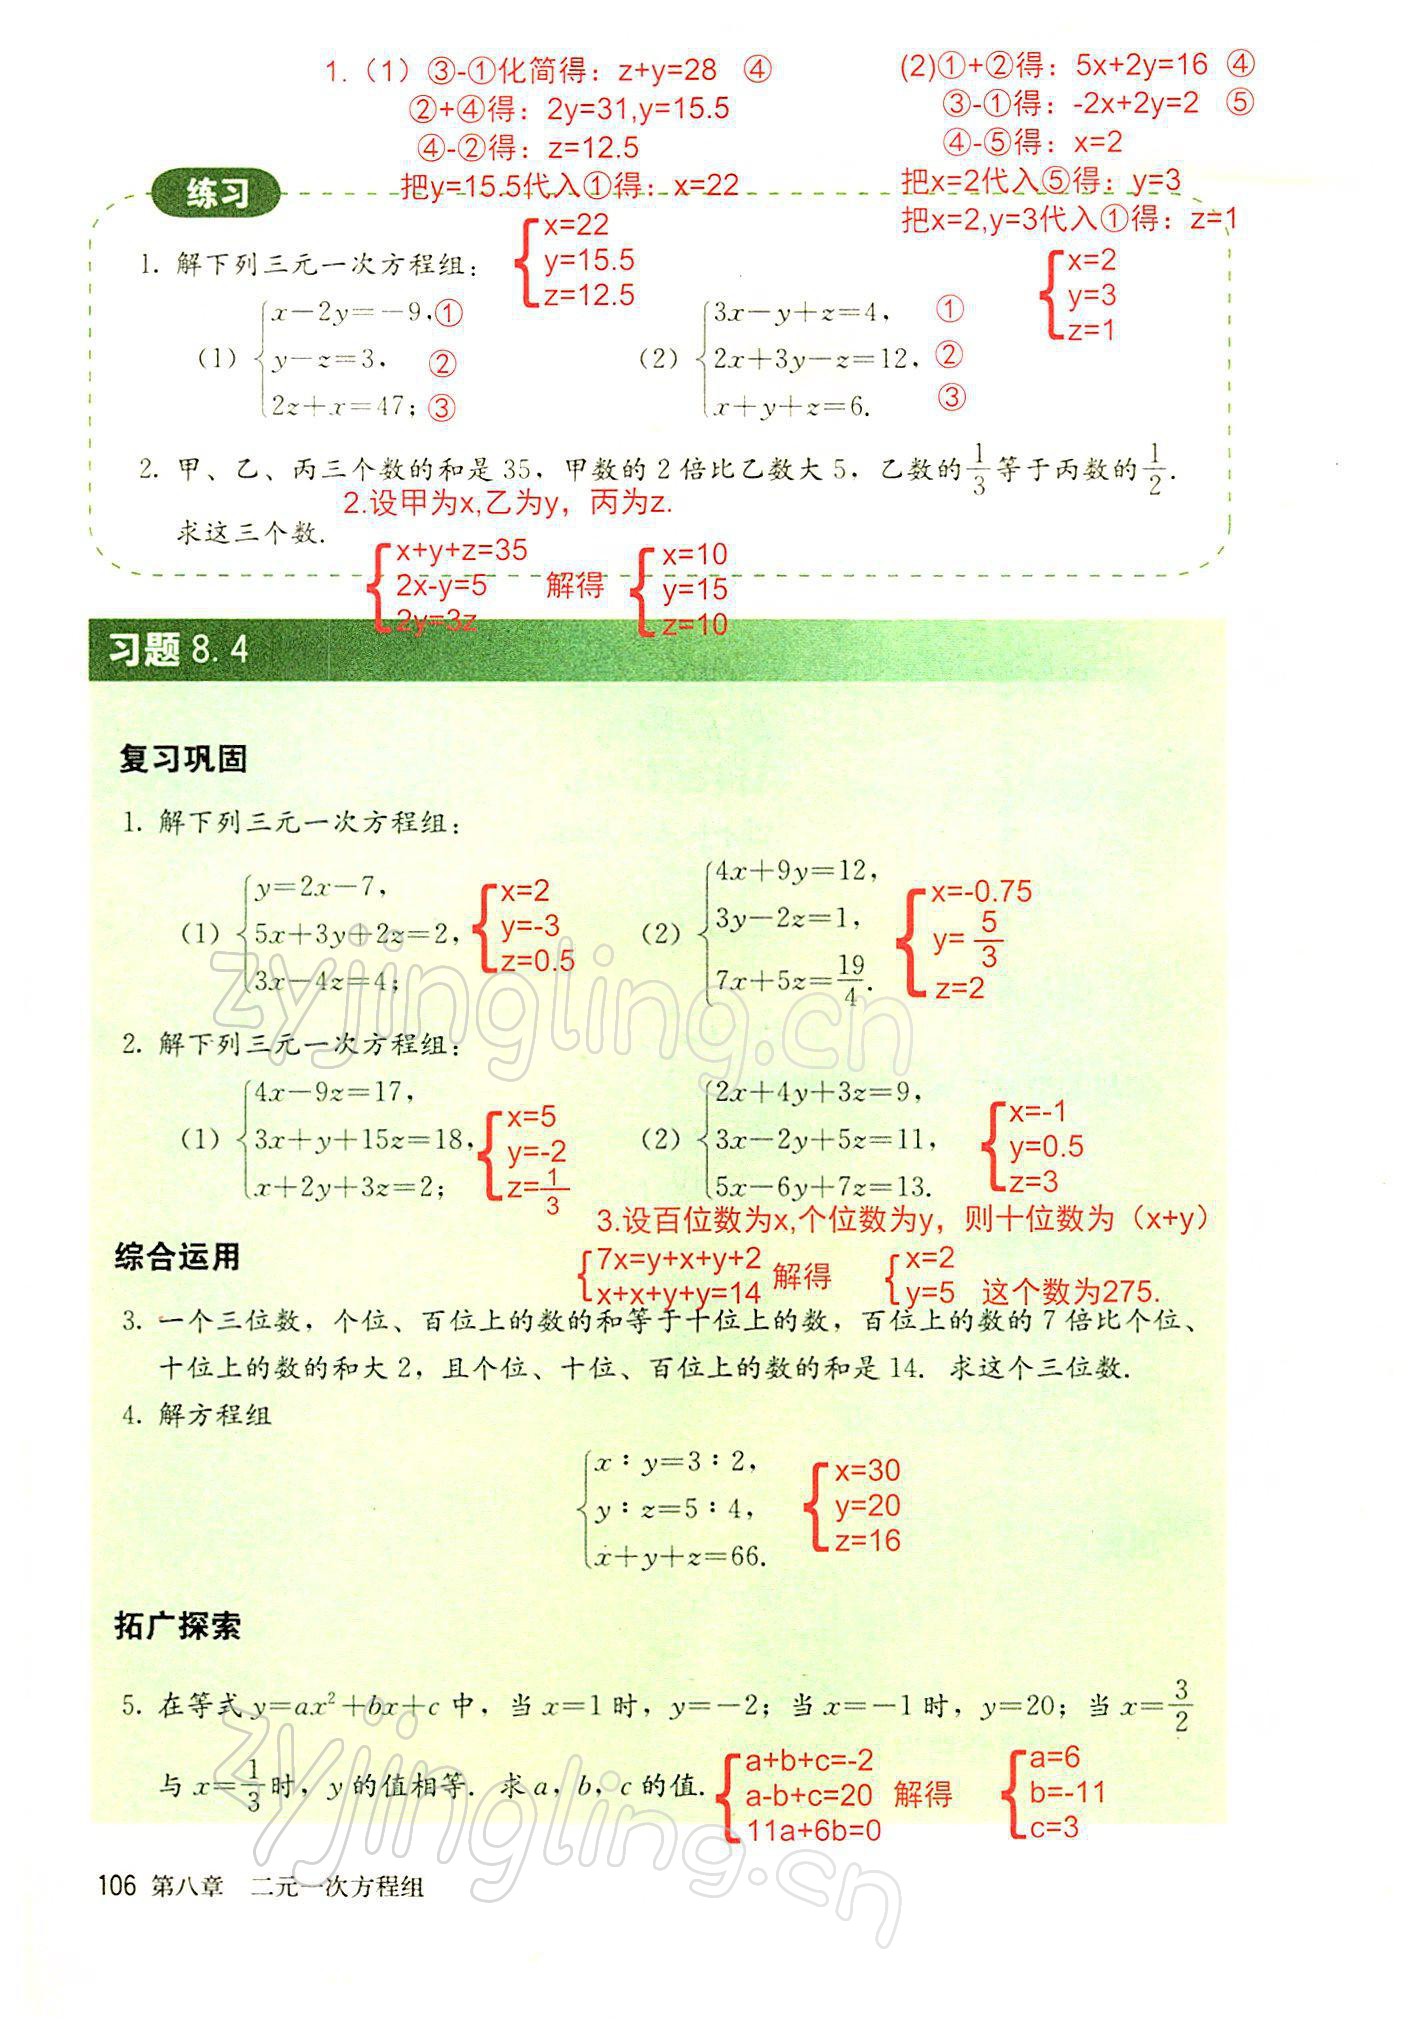 1.（1）③-①化简得：z+y=28 ④
②+④得：2y=31,y=15.5
④-②得：z=12.5
把y=15.5代入①得：x=22
x=22
y=15.5
z=12.5
(2)①+②得：5x+2y=16 ④
③-①得：-2x+2y=2 ⑤
④-⑤得：x=2
把x=2代入⑤得：y=3
把x=2,y=3代入①得：z=1
x=2
y=3
z=1
练习
1. 解下列三元一次方程组：
(1) x－2y＝－9, ①
y－z＝3, ②
2z＋x＝47; ③
(2) 3x－y＋z＝4, ①
2x＋3y－z＝12, ②
x＋y＋z＝6. ③
2. 甲、乙、丙三个数的和是 35, 甲数的 2 倍比乙数大 5, 乙数的 1/3 等于丙数的 1/2.
求这三个数.
2.设甲为x,乙为y，丙为z.
x+y+z=35
2x-y=5
2y=3z
解得
x=10
y=15
z=10
习题 8.4
复习巩固
1. 解下列三元一次方程组：
(1) y＝2x－7,
5x＋3y＋2z＝2,
3x－4z＝4;
x=2
y=-3
z=0.5
(2) 4x＋9y＝12,
3y－2z＝1,
7x＋5z＝19/4.
x=-0.75
y=5/3
z=2
2. 解下列三元一次方程组：
(1) 4x－9z＝17,
3x＋y＋15z＝18,
x＋2y＋3z＝2;
x=5
y=-2
z=1/3
(2) 2x＋4y＋3z＝9,
3x－2y＋5z＝11,
5x－6y＋7z＝13.
x=-1
y=0.5
z=3
3.设百位数为x,个位数为y，则十位数为（x+y）
7x=y+x+y+2
x+x+y+y=14
解得
x=2
y=5 这个数为275.
综合运用
3. 一个三位数, 个位、百位上的数的和等于十位上的数, 百位上的数的 7 倍比个位、
十位上的数的和大 2, 且个位、十位、百位上的数的和是 14. 求这个三位数.
4. 解方程组
x∶y＝3∶2,
y∶z＝5∶4,
x＋y＋z＝66.
x=30
y=20
z=16
拓广探索
5. 在等式 y＝ax²＋bx＋c 中, 当 x＝1 时, y＝－2; 当 x＝－1 时, y＝20; 当 x＝3/2
与 x＝1/3 时, y 的值相等. 求 a, b, c 的值.
a+b+c=-2
a-b+c=20
11a+6b=0
解得
a=6
b=-11
c=3
106 第八章 二元一次方程组
zyjingling.cn
zyjingling.cn